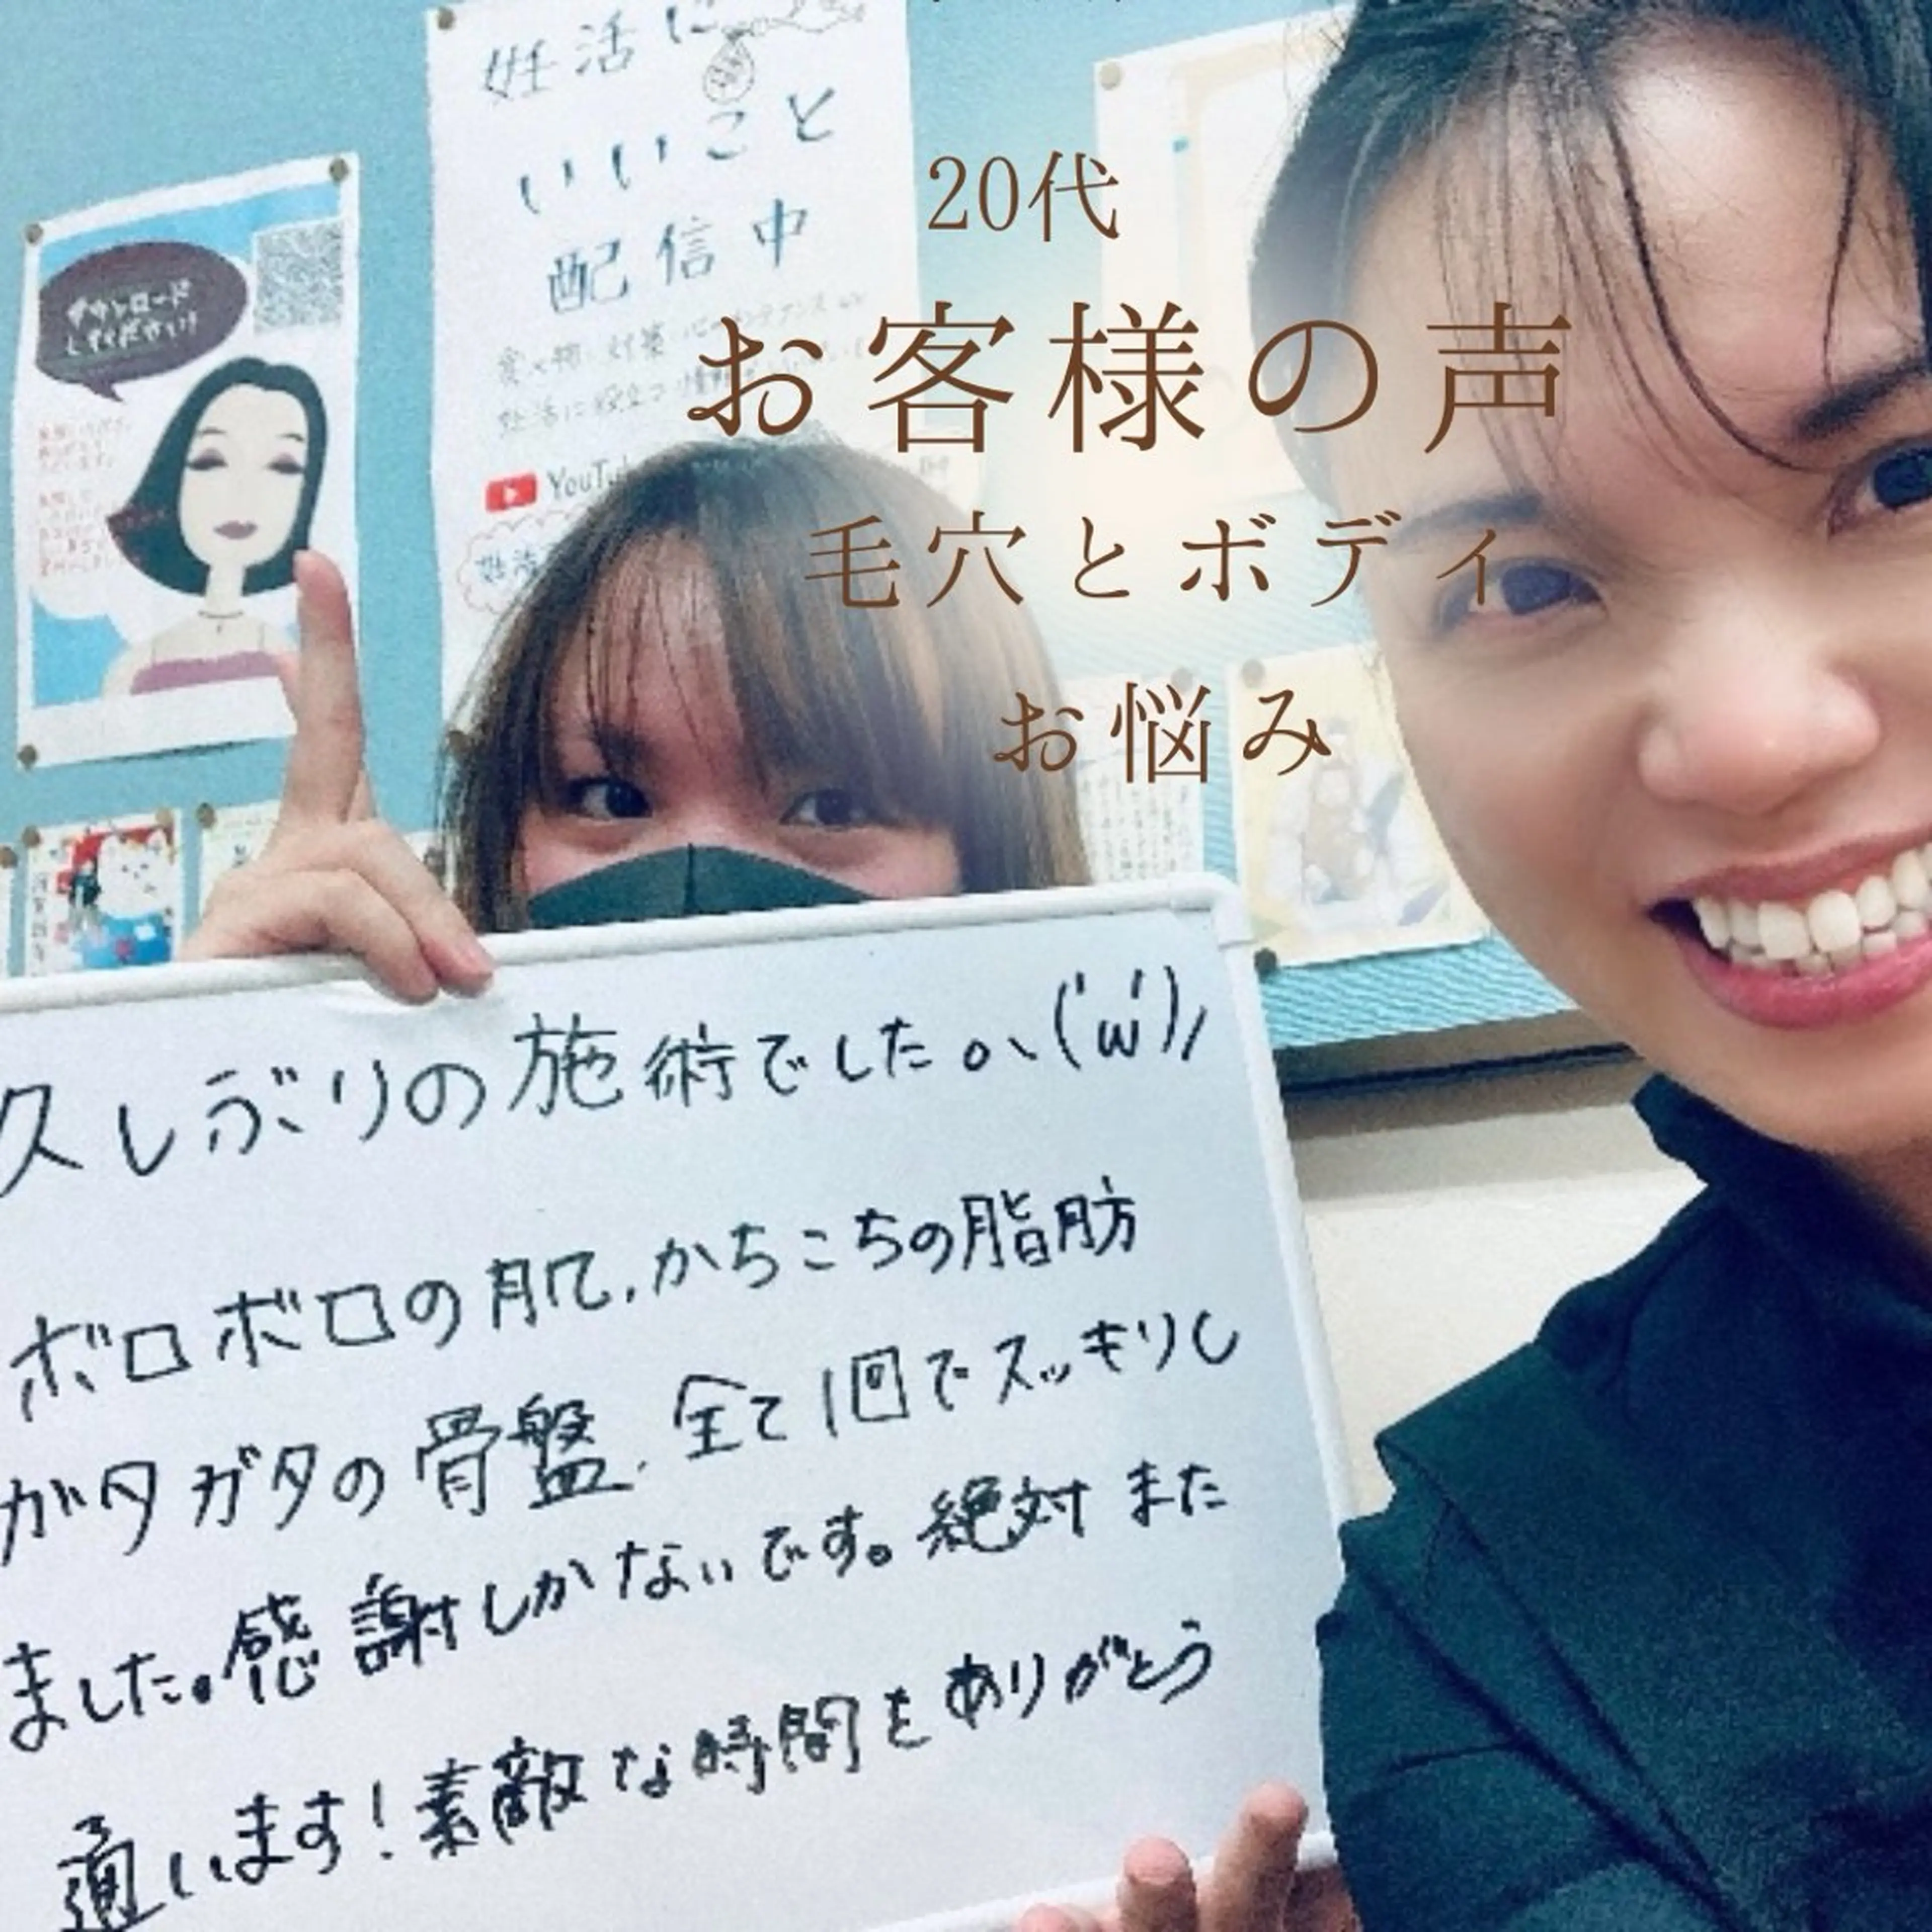 妊活に
いいこと
配信中
ダウンロード
してください!
YouTube
妊活
20代
お客様の声
毛穴とボディ
お悩み
久しぶりの施術でした。ヽ('ω')ﾉ
ボロボロの肌、かちこちの脂肪
ガタガタの骨盤、全て1回でスッキリし
ました。感謝しかないです。絶対また
通います!素敵な時間をありがとう